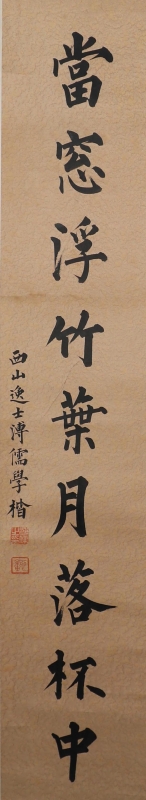 當窓浮竹葉月落杯中
西山逸士溥儒學楷